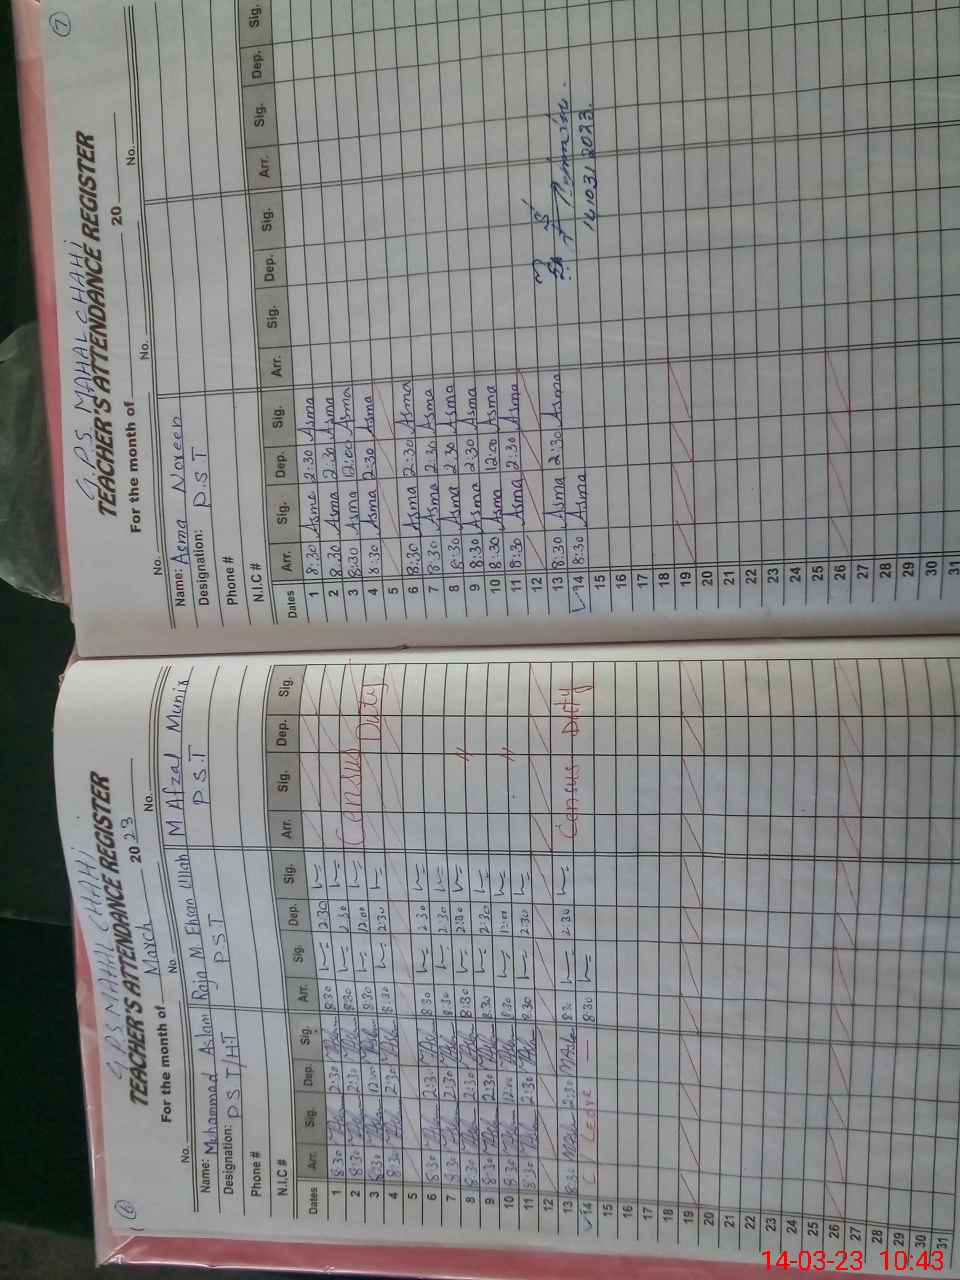 6
G.P.S MAHAL CHAHI
TEACHER'S ATTENDANCE REGISTER
For the month of March 2023
No. No. No.
Name: Muhammad Aslam Raja M. Ehsan Ullah M Afzal Munir
Designation: P S T / H.T P S.T P.S.T
Phone #
N.I.C #
Dates Arr. Sig. Dep. Sig. Arr. Sig. Dep. Sig. Arr. Sig. Dep. Sig.
1 8:30 2:30 8:30 2:30
2 8:30 2:30 8:30 2:30 Census Duty
3 8:30 12:00 8:30 12:00
4 8:30 2:30 8:30 2:30
5
6 8:30 2:30 8:30 2:30
7 8:30 2:30 8:30 2:30
8 8:30 2:30 8:30 2:30 "
9 8:30 2:30 8:30 2:30
10 8:30 12:00 8:30 12:00 "
11 8:30 2:30 8:30 2:30
12
13 8:30 2:30 8:30 2:30 Census Duty
14 Leave 8:30
15
16
17
18
19
20
21
22
23
24
25
26
27
28
29
30
31
7
G.P.S MAHAL CHAHI
TEACHER'S ATTENDANCE REGISTER
For the month of 20
No. No. No.
Name: Asma Noreen
Designation: P.S T
Phone #
N.I.C #
Dates Arr. Sig. Dep. Sig. Arr. Sig. Dep. Sig. Arr. Sig. Dep. Sig.
1 8:30 Asma 2:30 Asma
2 8:30 Asma 2:30 Asma
3 8:30 Asma 12:00 Asma
4 8:30 Asma 2:30 Asma
5
6 8:30 Asma 2:30 Asma
7 8:30 Asma 2:30 Asma
8 8:30 Asma 2:30 Asma
9 8:30 Asma 2:30 Asma
10 8:30 Asma 12:00 Asma
11 8:30 Asma 2:30 Asma
12
13 8:30 Asma 2:30 Asma
14 8:30 Asma 14/03/2023
15
16
17
18
19
20
21
22
23
24
25
26
27
28
29
30
31
14-03-23 10:43